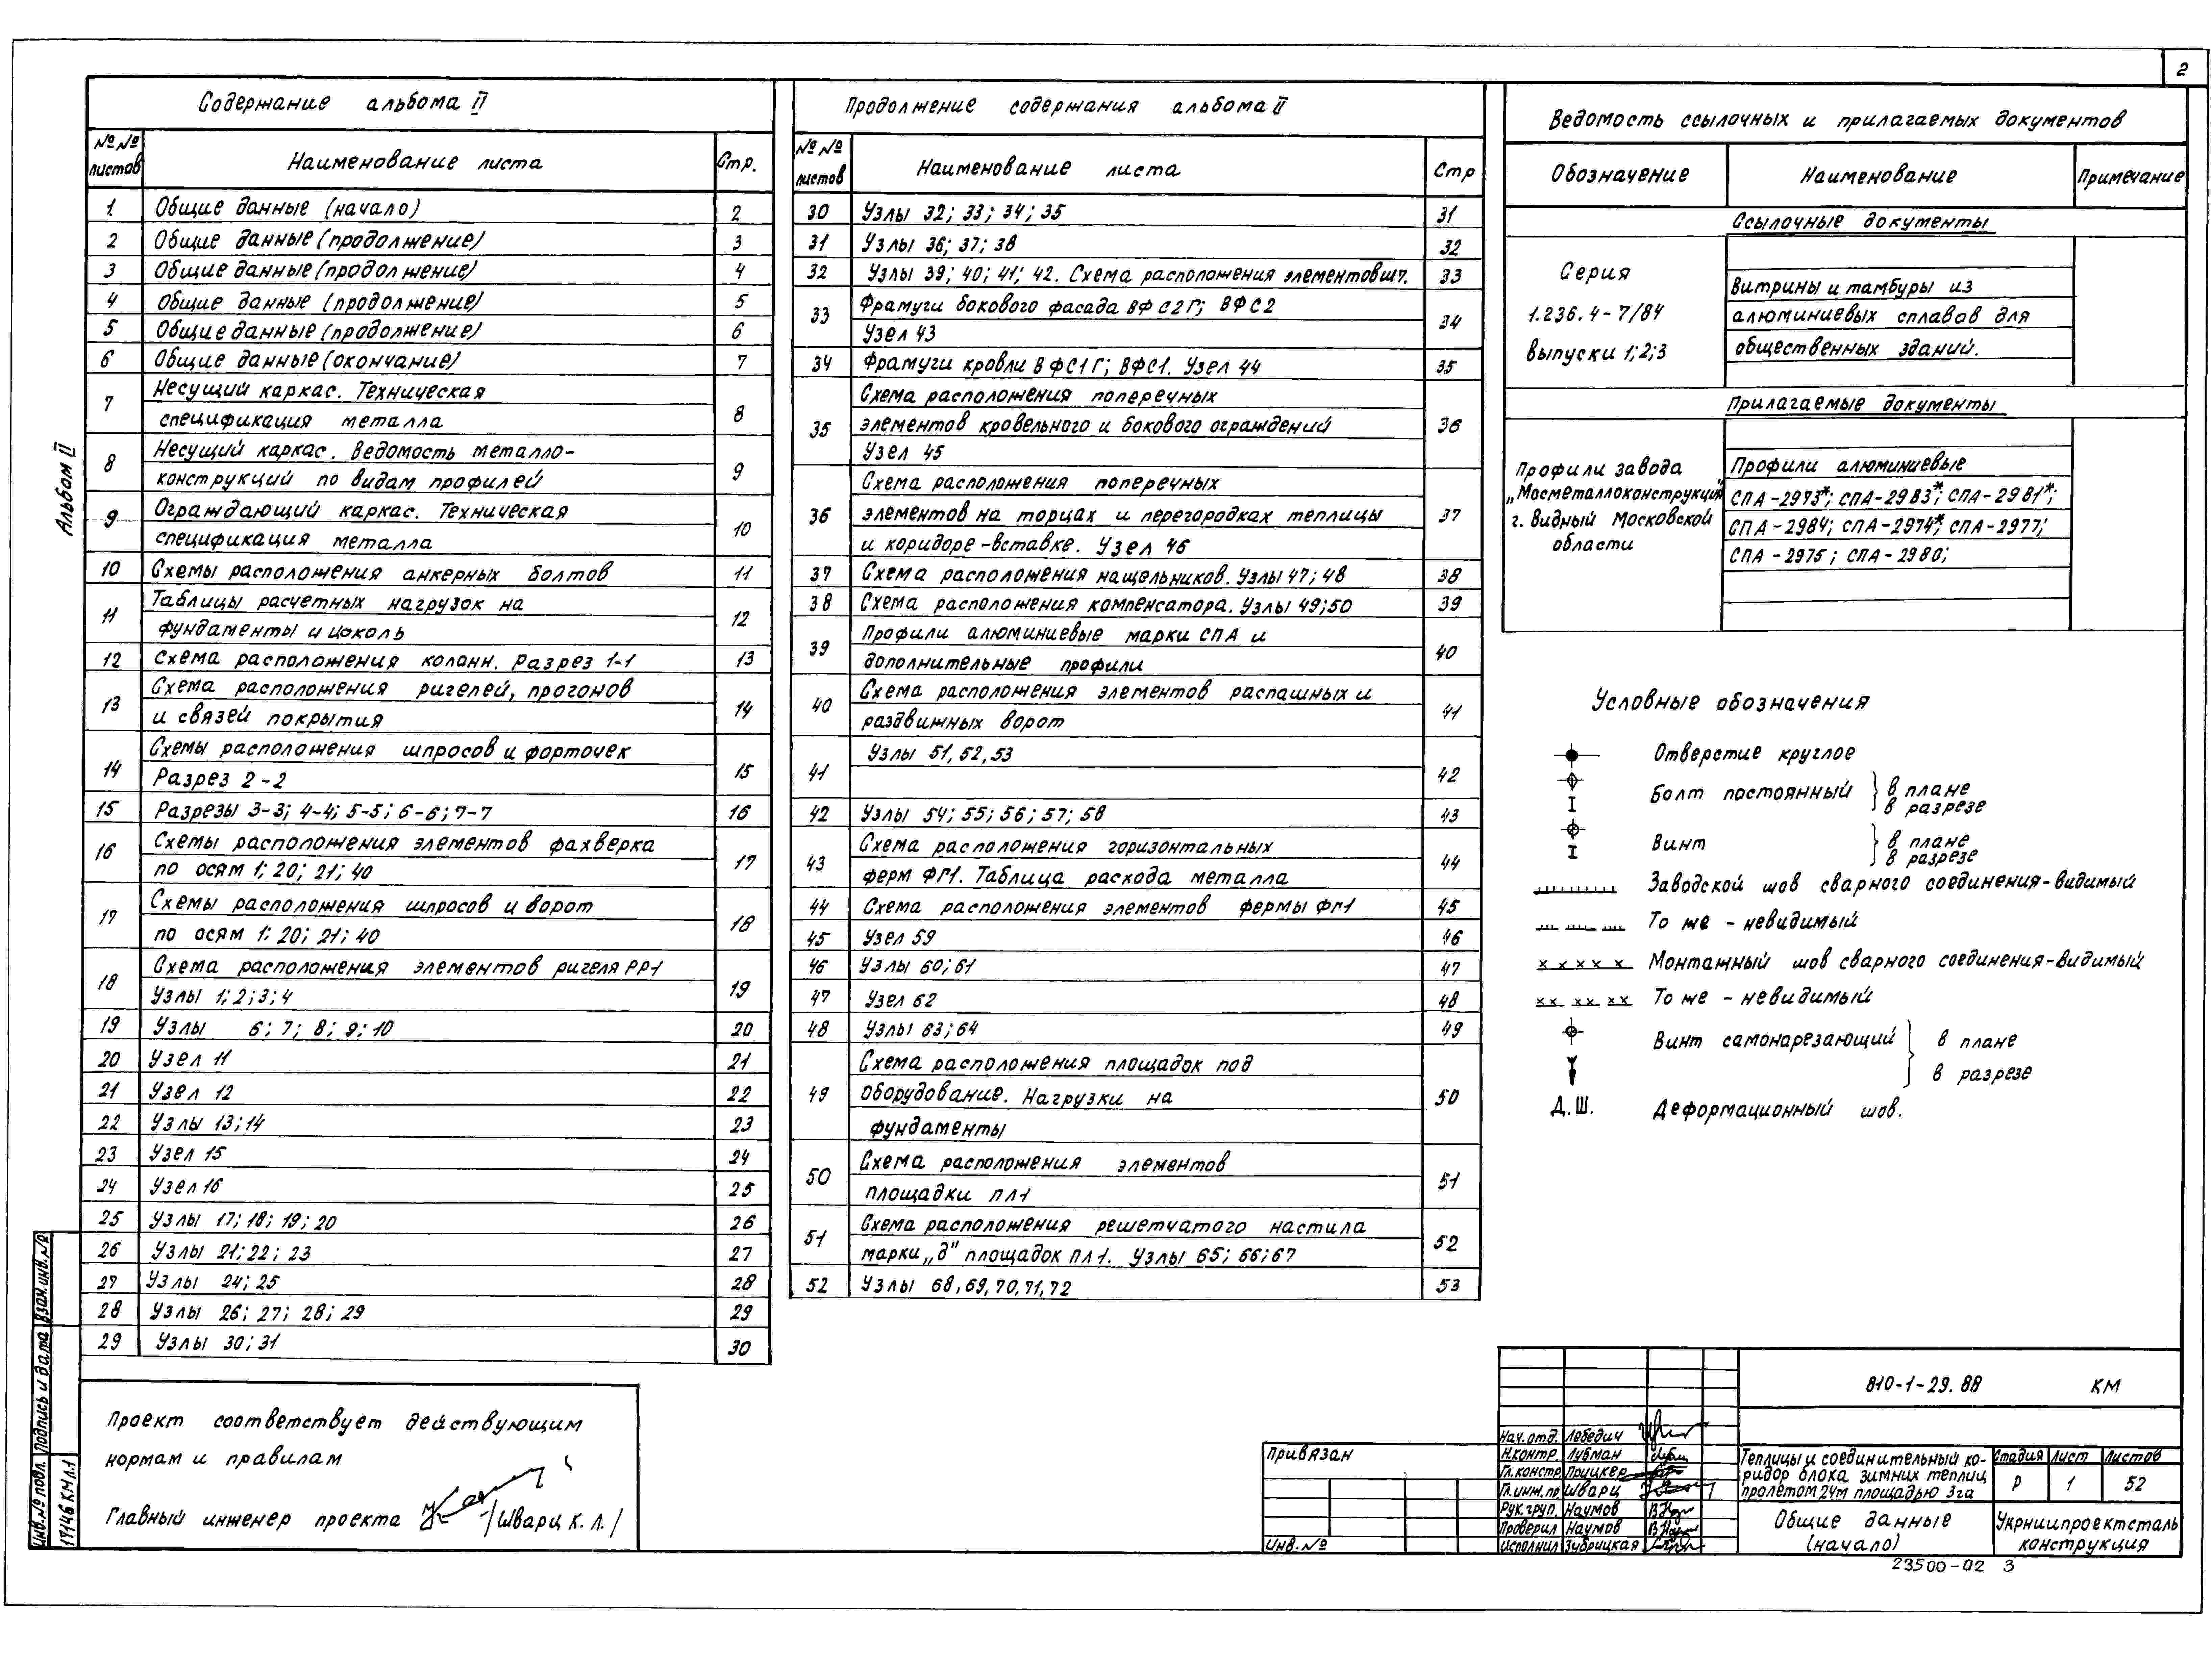 2
Альбом II
Содержание альбома II
№ № листов Наименование листа Стр.
1 Общие данные (начало) 2
2 Общие данные (продолжение) 3
3 Общие данные (продолжение) 4
4 Общие данные (продолжение) 5
5 Общие данные (продолжение) 6
6 Общие данные (окончание) 7
7 Несущий каркас. Техническая
спецификация металла 8
8 Несущий каркас. Ведомость металло-
конструкций по видам профилей 9
9 Ограждающий каркас. Техническая
спецификация металла 10
10 Схемы расположения анкерных болтов 11
11 Таблицы расчетных нагрузок на
фундаменты и цоколь 12
12 Схема расположения колонн. Разрез 1-1 13
13 Схема расположения ригелей, прогонов
и связей покрытия 14
14 Схемы расположения шпросов и форточек
Разрез 2-2 15
15 Разрезы 3-3; 4-4; 5-5; 6-6; 7-7 16
16 Схемы расположения элементов фахверка
по осям 1; 20; 21; 40 17
17 Схемы расположения шпросов и ворот
по осям 1; 20; 21; 40 18
18 Схема расположения элементов ригеля РР1
Узлы 1; 2; 3; 4 19
19 Узлы 6; 7; 8; 9; 10 20
20 Узел 11 21
21 Узел 12 22
22 Узлы 13; 14 23
23 Узел 15 24
24 Узел 16 25
25 Узлы 17; 18; 19; 20 26
26 Узлы 21; 22; 23 27
27 Узлы 24; 25 28
28 Узлы 26; 27; 28; 29 29
29 Узлы 30; 31 30
Продолжение содержания альбома II
№ № листов Наименование листа Стр
30 Узлы 32; 33; 34; 35 31
31 Узлы 36; 37; 38 32
32 Узлы 39; 40; 41; 42. Схема расположения элементов шт. 33
33 Фрамуги бокового фасада ВФС2Г; ВФС2
Узел 43 34
34 Фрамуги кровли ВФС1Г; ВФС1. Узел 44 35
35 Схема расположения поперечных
элементов кровельного и бокового ограждений
Узел 45 36
36 Схема расположения поперечных
элементов на торцах и перегородках теплицы
и коридоре-вставке. Узел 46 37
37 Схема расположения нащельников. Узлы 47; 48 38
38 Схема расположения компенсатора. Узлы 49; 50 39
39 Профили алюминиевые марки СПА и
дополнительные профили 40
40 Схема расположения элементов распашных и
раздвижных ворот 41
41 Узлы 51, 52, 53 42
42 Узлы 54; 55; 56; 57; 58 43
43 Схема расположения горизонтальных
ферм ФГ1. Таблица расхода металла 44
44 Схема расположения элементов фермы ФГ1 45
45 Узел 59 46
46 Узлы 60; 61 47
47 Узел 62 48
48 Узлы 63; 64 49
49 Схема расположения площадок под
оборудование. Нагрузки на
фундаменты 50
50 Схема расположения элементов
площадки ПЛ1 51
51 Схема расположения решетчатого настила
марки „д" площадок ПЛ1. Узлы 65; 66; 67 52
52 Узлы 68, 69, 70, 71, 72 53
Ведомость ссылочных и прилагаемых документов
Обозначение Наименование Примечание
Ссылочные документы
Серия
1.236.4-7/84
выпуски 1; 2; 3
Витрины и тамбуры из
алюминиевых сплавов для
общественных зданий.
Прилагаемые документы
Профили завода
„Мосметаллоконструкция"
г. Видный Московской
области
Профили алюминиевые
СПА-2973*; СПА-2983*; СПА-2981*;
СПА-2984; СПА-2974*; СПА-2977;
СПА-2975; СПА-2980;
Условные обозначения
Отверстие круглое
Болт постоянный } в плане
в разрезе
Винт } в плане
в разрезе
Заводской шов сварного соединения-видимый
То же - невидимый
Монтажный шов сварного соединения-видимый
То же - невидимый
Винт самонарезающий } в плане
в разрезе
Д.Ш. Деформационный шов.
Проект соответствует действующим
нормам и правилам
Главный инженер проекта /Шварц К. Л./
Инв. № подл. Подпись и дата Взам. инв. №
17146 КМ л.1
Привязан
Инв. №
Нач. отд. Лебедич
Н.контр. Лубман
Гл.констр. Прицкер
Гл.инж.пр. Шварц
Рук. груп. Наумов
Проверил Наумов
Исполнил Зубрицкая
810-1-29.88 КМ
Теплицы и соединительный ко-
ридор блока зимних теплиц
пролетом 24м площадью 3га
Стадия Лист Листов
Р 1 52
Общие данные
(начало)
Укрниипроектсталь
конструкция
23500-02 3